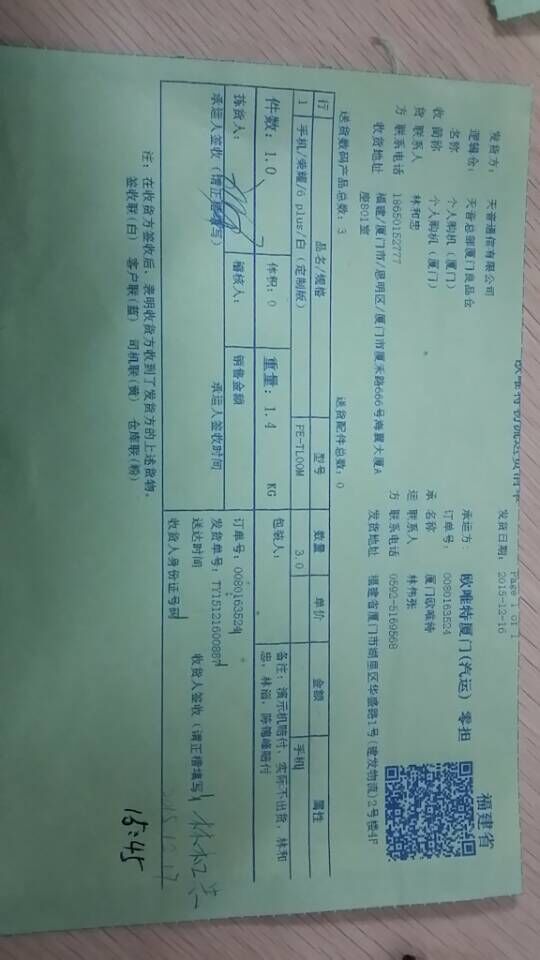 Page 1 of 1
发货日期：2015-12-16
福建省
发货方：天音通信有限公司
逻辑仓：天音总部厦门良品仓
名称 个人购机（厦门）
收 简称 个人购机（厦门）
货 联系人 林和忠
方 联系电话 18650152777
收货地址 福建/厦门市/思明区/厦门市厦禾路666号海翼大厦A
座801室
承运方：欧唯特厦门(汽运) 零担
订单号：0080163524
承 名称 厦门欧唯特
运 联系人 林伟张
方 联系电话 0592-5169568
发货地址 福建省厦门市湖里区华盛路1号(建发物流)2号楼4F
送货数码产品总数：3 送货配件总数：0
行 品名/规格 型号 数量 单价 金额 属性
1 手机/荣耀/6 plus/白（定制版） PE-TL00M 3.0 手机
件数：1.0 体积：0 重量：1.4 KG 包装人：
备注：演示机赔付，实际不出货，林和
忠，林滔，陈德峰赔付
拣货人： 稽核人： 销售金额 订单号：0080163524
承运人签收（请正楷填写） 承运人签收时间 发货单号：TY15121600887
送达时间 收货人签收（请正楷填写）
收货人身份证号码
15:45
注：在收货方签收后，表明收货方收到了发货方的上述货物。
签收联(白) 客户联(蓝) 司机联(黄) 仓库联(粉)